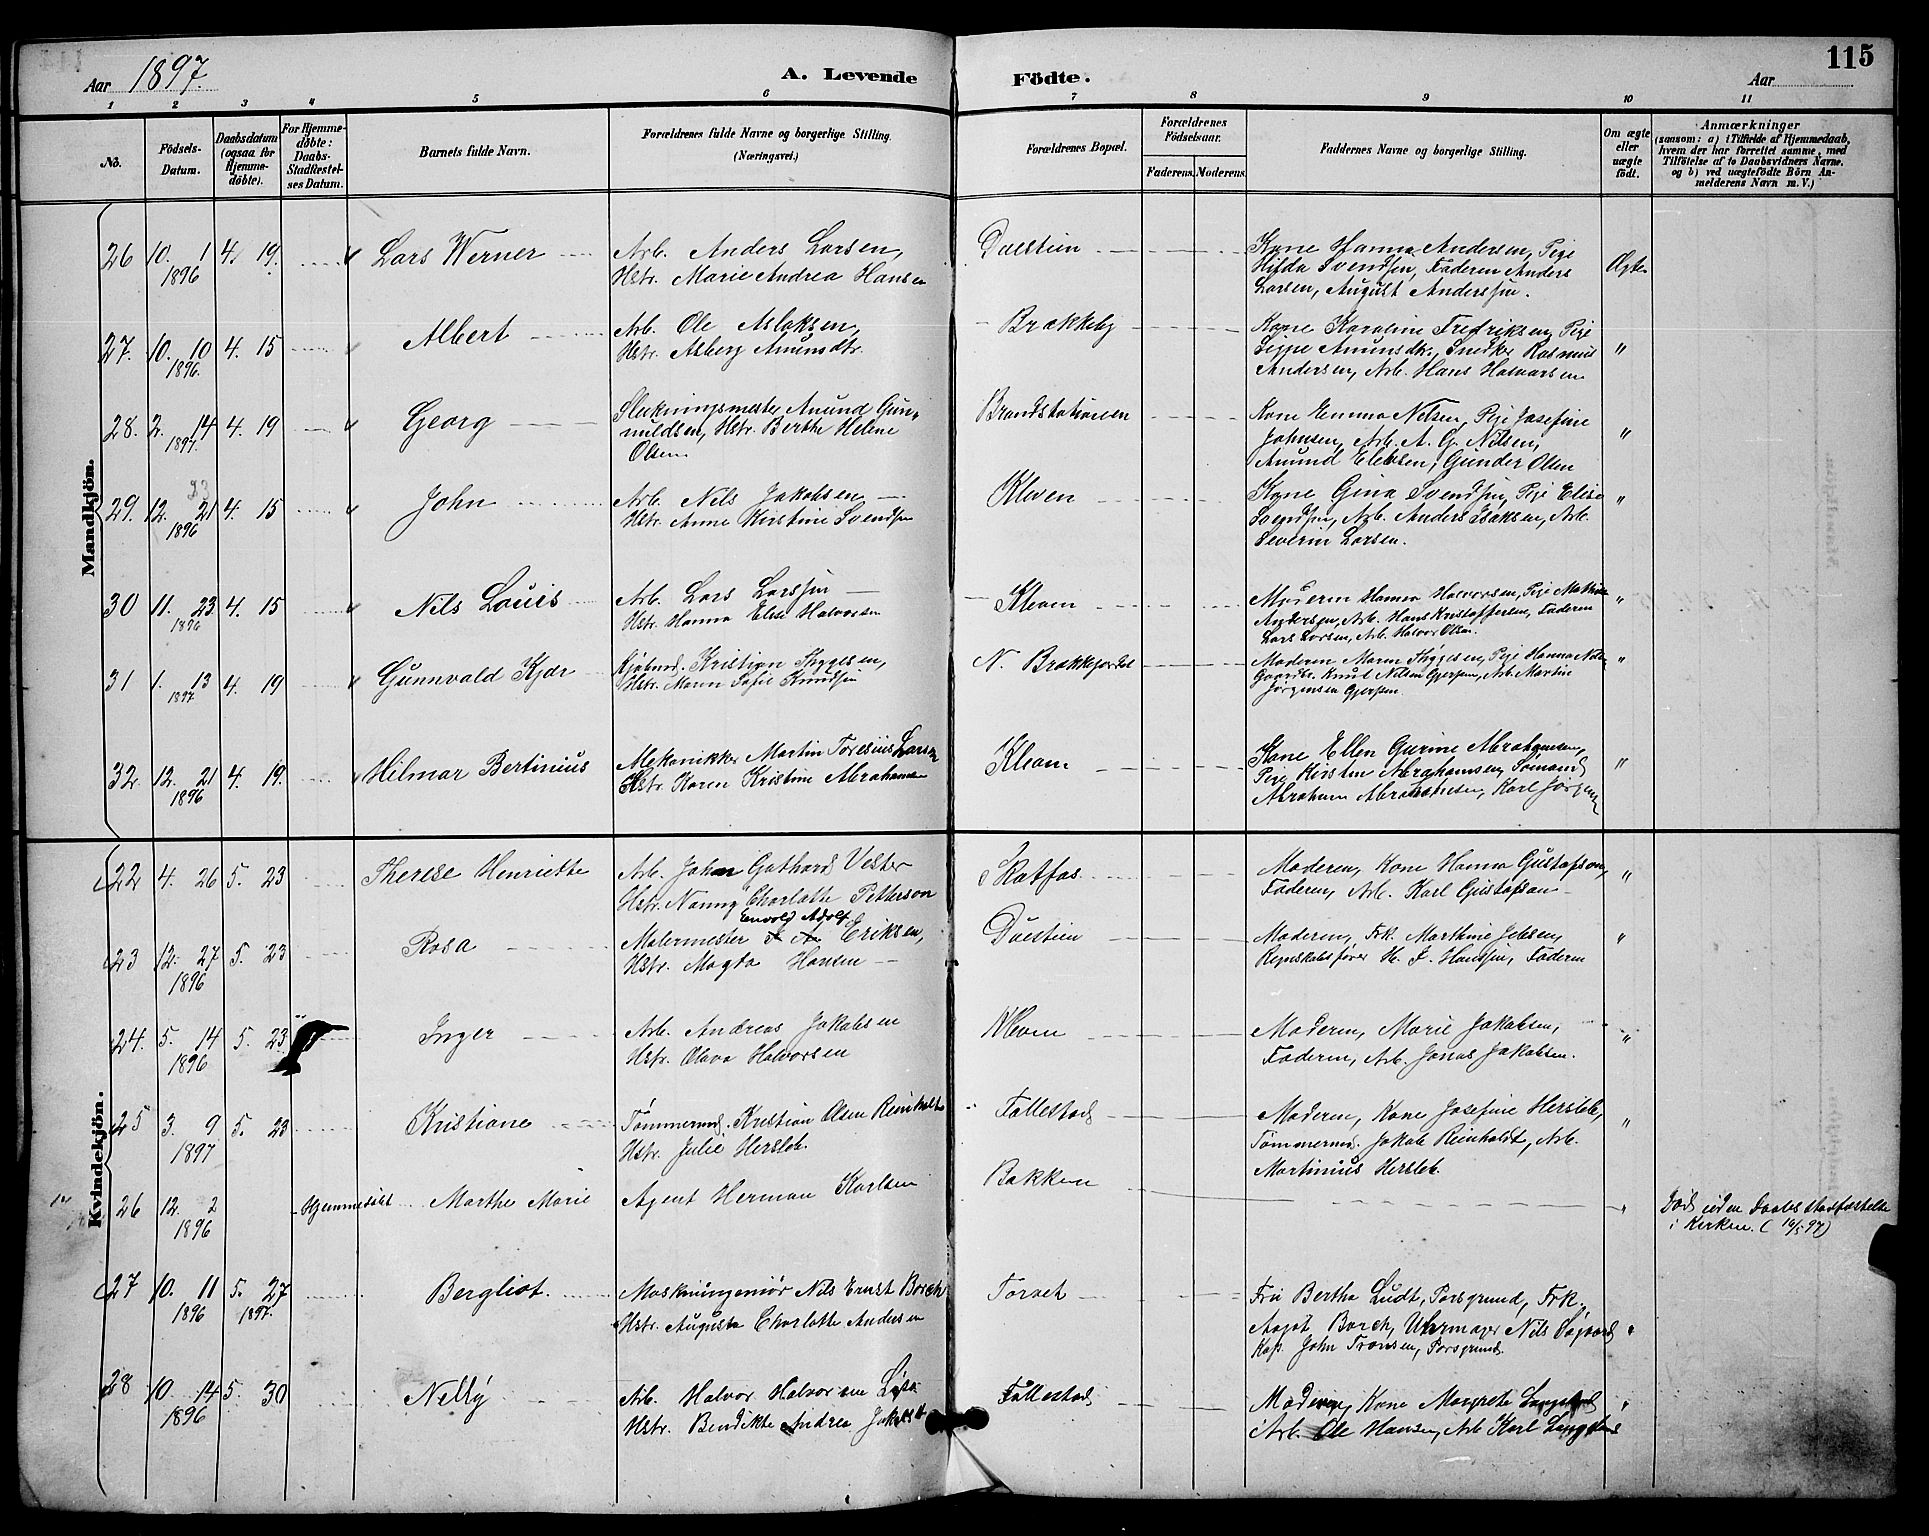 Aar 1897.
A. Levende Födte.
Aar
115
1 2 3 4 5 6 7 8 9 10 11
No.
Födsels-Datum.
Daabsdatum (ogsaa for Hjemme-döbte).
For Hjemme-döbte: Daabs-Stadfæstel-ses Datum.
Barnets fulde Navn.
Forældrenes fulde Navne og borgerlige Stilling. (Næringsvei.)
Forældrenes Bopæl.
Forældrenes Födselsaar.
Faderens. Moderens.
Faddernes Navne og borgerlige Stilling.
Om ægte eller uægte födt.
Anmærkninger
(saasom: a) i Tilfælde af Hjemmedaab, hvem der har forrettet samme, med Tilföielse af to Daabsvidners Navne, og b) ved uægtefödte Börn An-melderens Navn m. V.)
Mandkjön.
26 10. 1 1896 4. 19. Lars Werner Arb. Anders Larsen, Daestien Kone Hanna Andersen, Pige
Hstr. Marie Andrea Hansen Hilda Svendsen, Faderen Anders Ægte
Larsen, August Anderssen.
27. 10. 10 1896. 4. 15 Albert Arb. Ole Aslaksen, Brækkeby Kone Karoline Fredriksen, Pige
Hstr. Asberg Amundsdtr. Amundsdtr., Snedker Rasmus "
Andersen, Arb. Hans Halvorsen
28. 2. 14 1897. 4. 19 Georg Slukningsmester Anund Gun- Brandstationen Kone Emma Nilsen, Pige Josefine
nuldsen, Hstr. Berthe Helene Johnsen, Arb. A. G. Nilsen, "
Olsen Anund Elevsen, Gunder Olsen
29. 12. 23 21 1896 4. 15 John Arb. Nils Jakobsen Kleven Kone Gina Svendsen, Pige Elise "
Hstr. Anne Kirstine Svendsen Svendsen, Arb. Anders Isaksen, Arb.
Severin Larsen.
30 11. 23. 1896 4. 15 Nils Louis Arb. Lars Larssen Kleven Moderen Hanna Halvorsen, Pige "
Hstr. Hanna Elise Halvorsen Andersen, Arb. Hans Kristoffersen, Faderen
Lars Larsen, Arb. Halvor Olsen
31 1. 13 1897 4. 19 Gunnvald Kjær Kjøbmd. Kristian Thygesen, N. Brækkejordet Moderen Maren Thygesen, Pige Hanna "
Hstr. Maren Sofie Knudsen Gaardbr. Knud Nilsen Gjerpen, Arb. Martin
Jørgensen Gjerpen.
32. 12. 21 1896 4. 19. Hilmar Bertinius Mekanikker Martin Toresius Larsen Kleven Kone Ellen Gurine Abrahamsen,
Hstr. Karen Kristine Abrahamsen Pige Kirsten Abrahamsen, Sømand "
Abraham Abrahamsen, Karl Jørgensen
Kvindekjön.
22 4. 26 5. 23 Therese Henriette Arb. Johan Gothard Vester Skotfos. Moderen, Kone Hanna Gustafson,
Hstr. Nanny Charlotte Petterson Faderen, Arb. Karl Gustafson "
23 12. 27 1896 5. 23 Rosa Malermester Envold Adolf Eriksen, Daestien Moderen, Frk. Marthine Jebsen, "
Hstr. Magda Hansen Regnskabsfører H. J. Hanssen, Faderen
24. 5. 14 1896 5. 23. Inger Arb. Andreas Jakobsen Kleven Moderen, Marie Jakobsen,
Hstr. Olava Halvorsen Faderen, Arb. Jonas Jakobsen. "
25 3. 9 1897 5. 23 Kristiane Tømmermd. Kristian Olsen Reinholt Follestad Moderen, Kone Josefine Hersleb,
Hstr. Julie Hersleb. Tømmermd. Jakob Reinholdt, Arb. "
Martinius Hersleb.
26 12. 2 1896 Hjemmedøbt Marthe Marie Agent Herman Karlsen Bakken " Død uden Daabsstadfæstelse
i Kirken. ( /5 97)
27 10. 11 1896 5. 27 1897. Bergliot. Maskiningeniør Nils Ernst Borch Torvet Fru Bertha Ludt, Porsgrund, Frk.
Hstr. Augusta Charlotte Andersen Aagot Borch, Uhrmager Nils "
Kap. John Tronsen, Porsgrund.
28 10. 14 1896 5. 30 Nelly Arb. Halvor Halvorsen Follestad Moderen, Kone Margrete "
Hstr. Bendikte Andrea Arb. Ole Hansen, Arb Karl